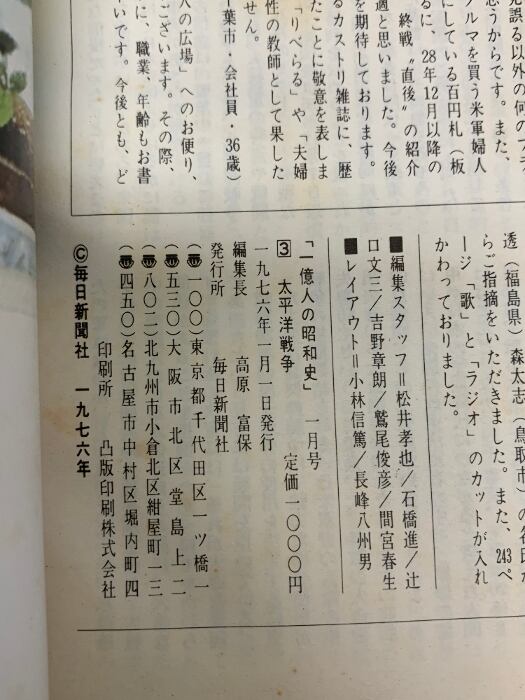 見誤る以外の何のプラ
思うからです。また、
クルマを買う米軍婦人
にしている百円札（板
るに、28年12月以降の
終戦〝直後〟の紹介
適と思いました。今後
を期待しております。
るカストリ雑誌に、歴
たことに敬意を表しま
「りべらる」や「夫婦
性の教師として果した
せん。
葉市・会社員・36歳）
人の広場」へのお便り、
ございます。その際、
に、職業、年齢もお書
いです。今後とも、ど
透（福島県）森太志（鳥取市）の各氏か
らご指摘をいただきました。また、243ペ
ージ「歌」と「ラジオ」のカットが入れ
かわっておりました。
■編集スタッフ＝松井孝也／石橋進／辻
口文三／吉野章朗／鷲尾俊彦／間宮春生
■レイアウト＝小林信篤／長峰八州男
「一億人の昭和史」 一月号
3 太平洋戦争 定価一〇〇〇円
一九七六年一月一日発行
編集長 高原富保
発行所 毎日新聞社
（〠一〇〇）東京都千代田区一ツ橋一
（〠五三〇）大阪市北区堂島上二
（〠八〇二）北九州市小倉北区紺屋町一三
（〠四五〇）名古屋市中村区堀内町四
印刷所 凸版印刷株式会社
©毎日新聞社 一九七六年